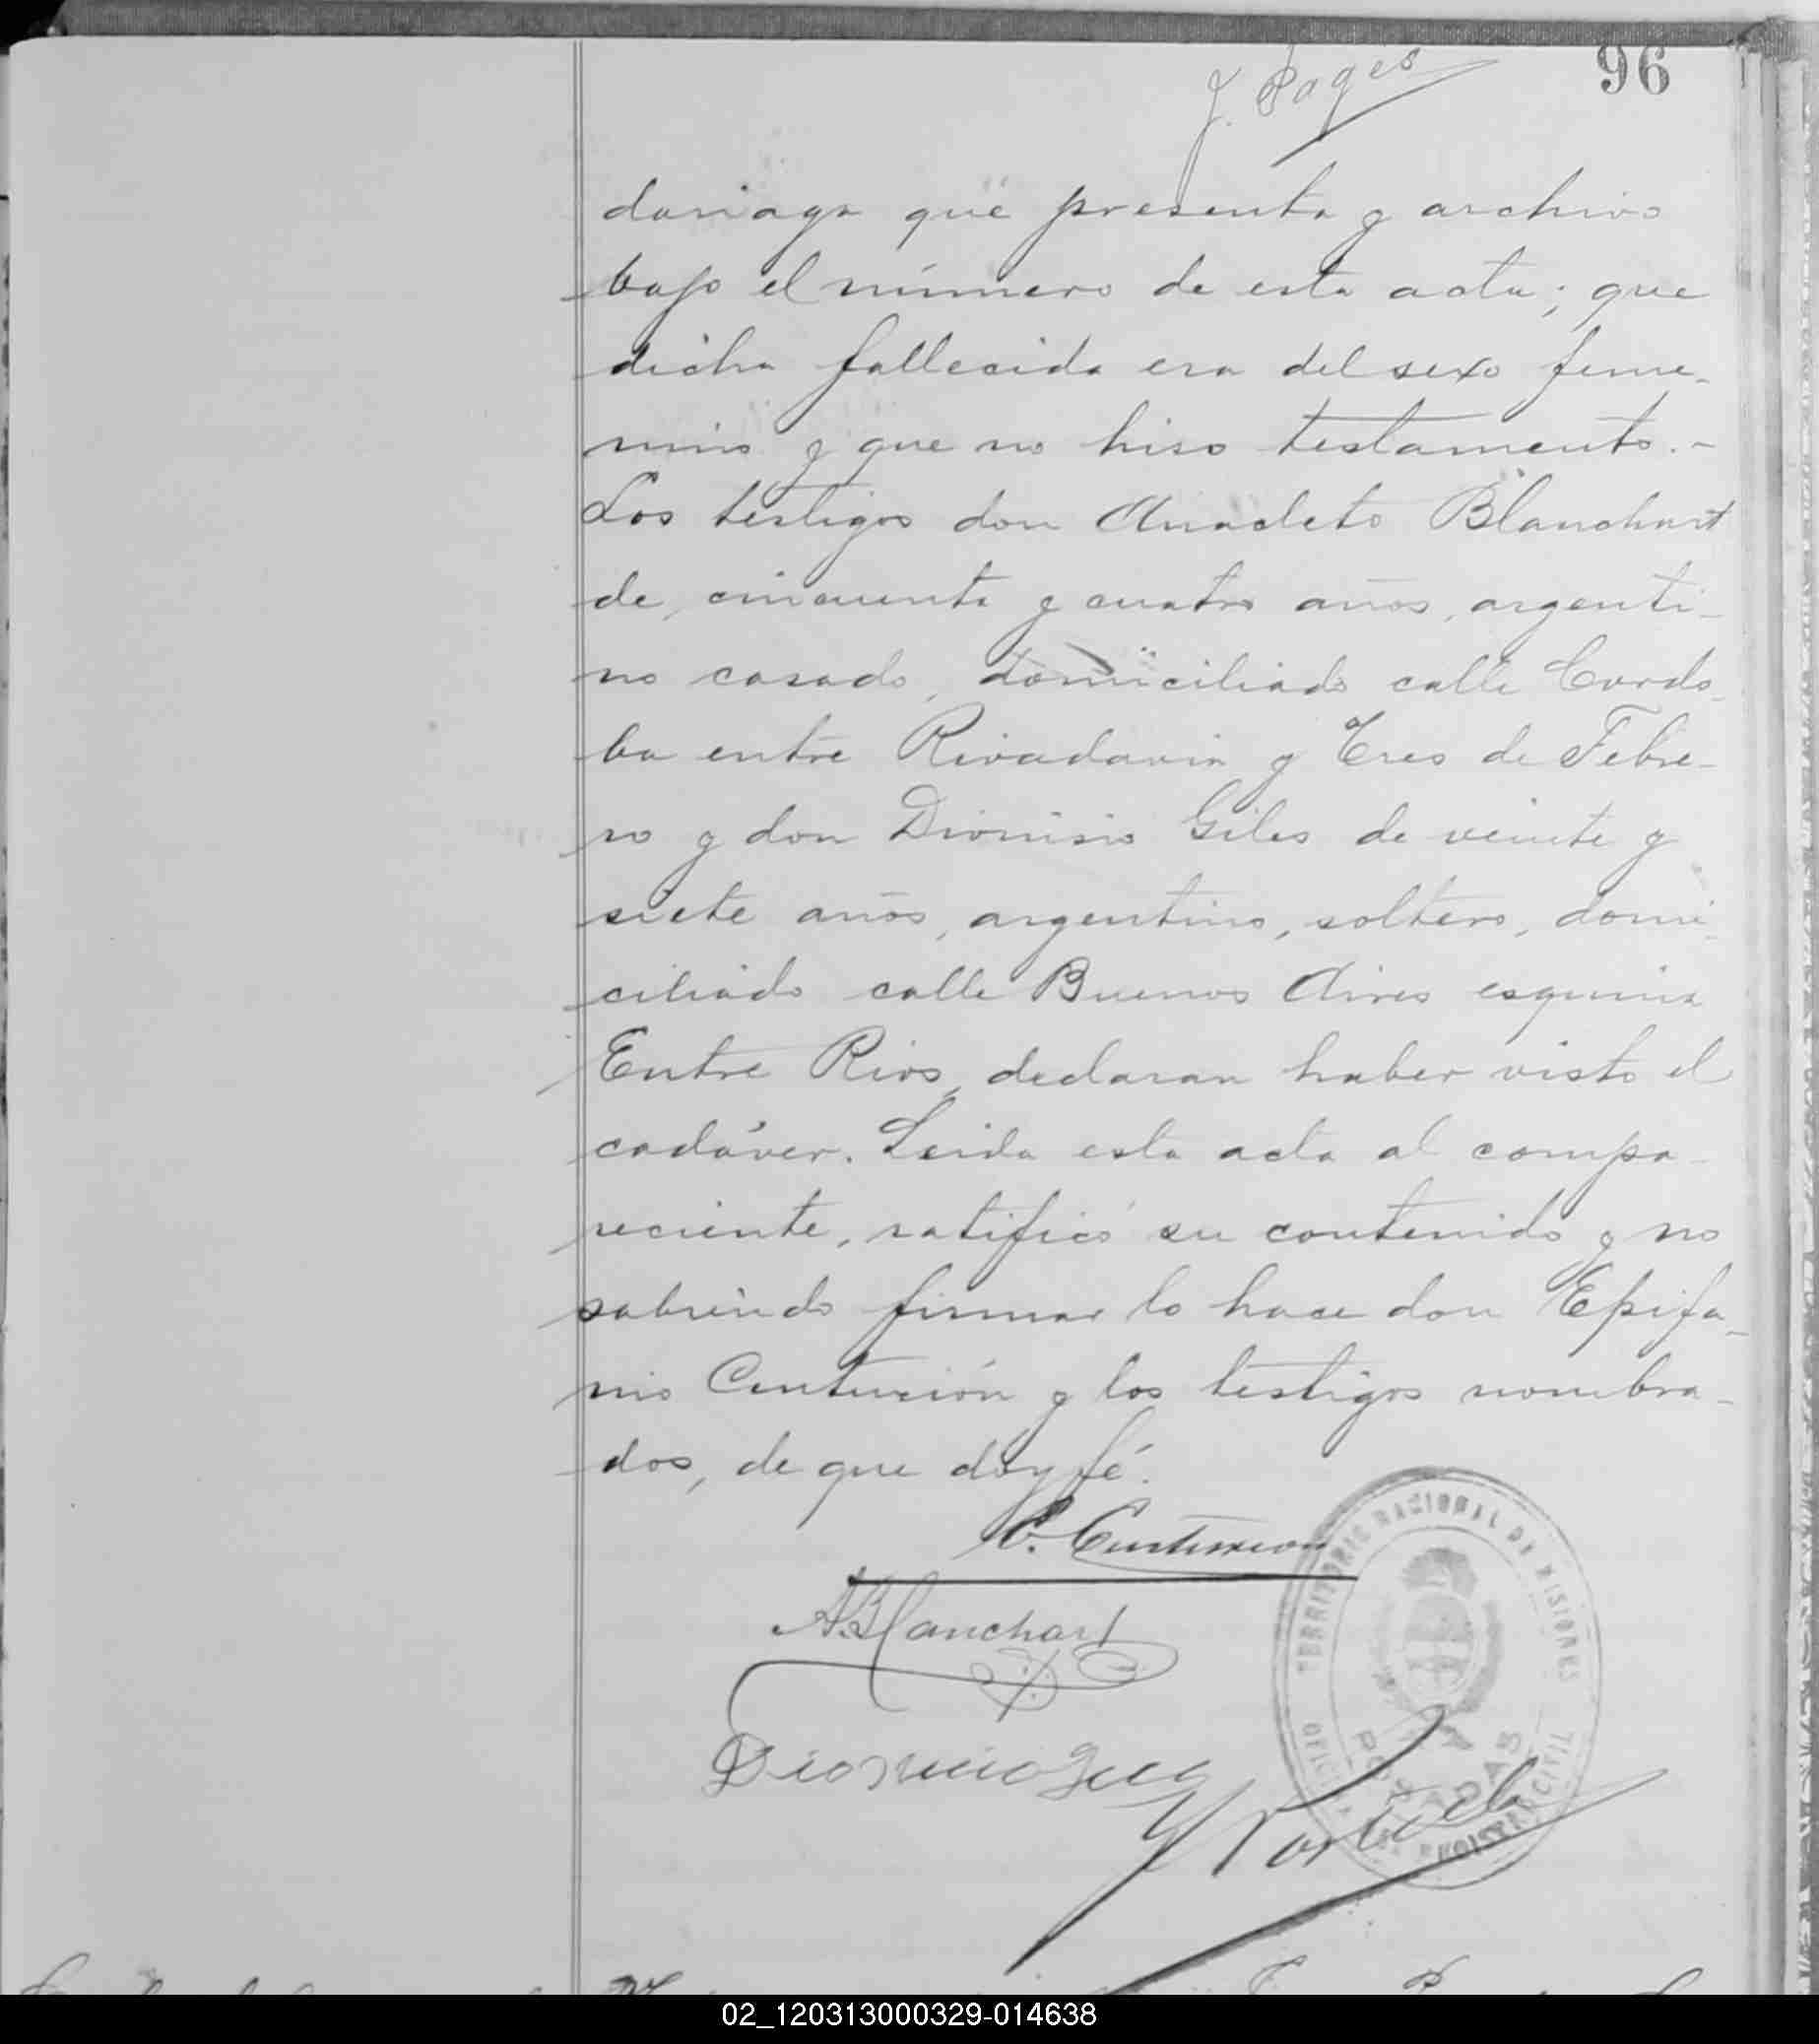 96
J. Pages
dariaga que presenta y archivo
bajo el número de esta acta; que
dicha fallecida era del sexo feme-
nino y que no hiso testamento.-
Los testigos don Anacleto Blanchart
de cincuenta y cuatro años, argenti-
no casado, domiciliado calle Cordo-
ba entre Rivadavia y Tres de Febre-
ro y don Dionisio Giles de veinte y
siete años, argentino, soltero, domi-
ciliado calle Buenos Aires esquina
Entre Rios, declaran haber visto el
cadáver. Leida esta acta al compa-
reciente, ratificó su contenido y no
sabiendo firmar lo hace don Epifa-
nio Centurión y los testigos nombra-
dos, de que doy fé.
E. Centurion
A. Blanchart
Dionicio
TERRITORIO NACIONAL DE MISIONES
POSADAS
REGISTRO CIVIL
02_120313000329-014638